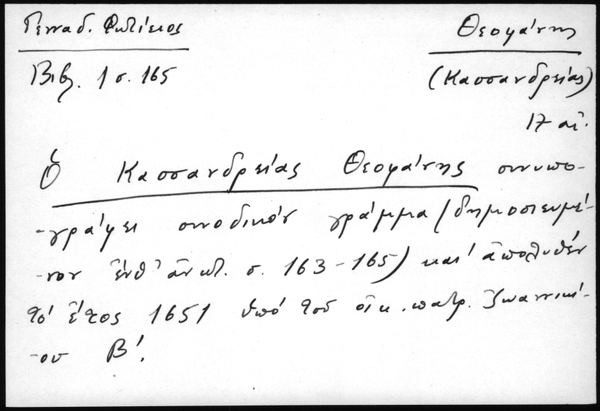 Γενναδ. Φωτίειος Θεοφάνης
Βιβλ. 1 σ. 165 (Κασσανδρείας)
17 αἰ.
Ὁ Κασσανδρείας Θεοφάνης συνυπο-
-γράφει συνοδικόν γράμμα (δημοσιευμέ-
-νον ἔνθ' ἀνωτ. σ. 163-165) κατ' ἀπολυθέν
τό ἔτος 1651 ὑπό τοῦ οἰκ. πατρ. Ἰωαννικί-
-ου Β'.